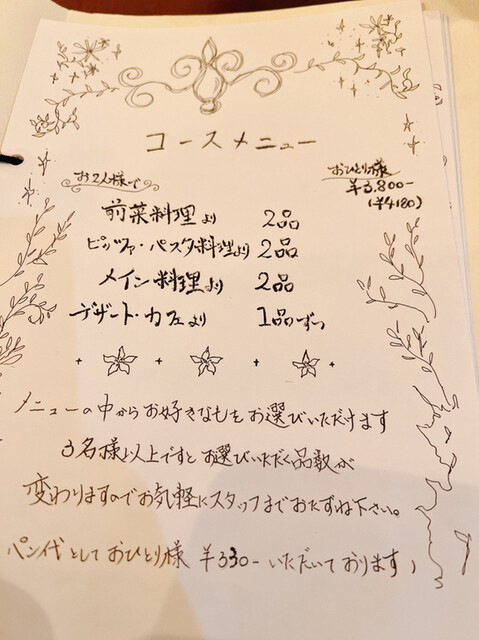 コースメニュー
お2人様で
おひとり様
¥3,800-
(¥4180)
前菜料理より 2品
ピッツァ・パスタ料理より 2品
メイン料理より 2品
デザート・カフェより 1品ずつ
メニューの中からお好きなもをお選びいただけます
3名様以上ですとお選びいただく品数が
変わりますのでお気軽にスタッフまでおたずね下さい。
パン代としておひとり様 ¥330-いただいております